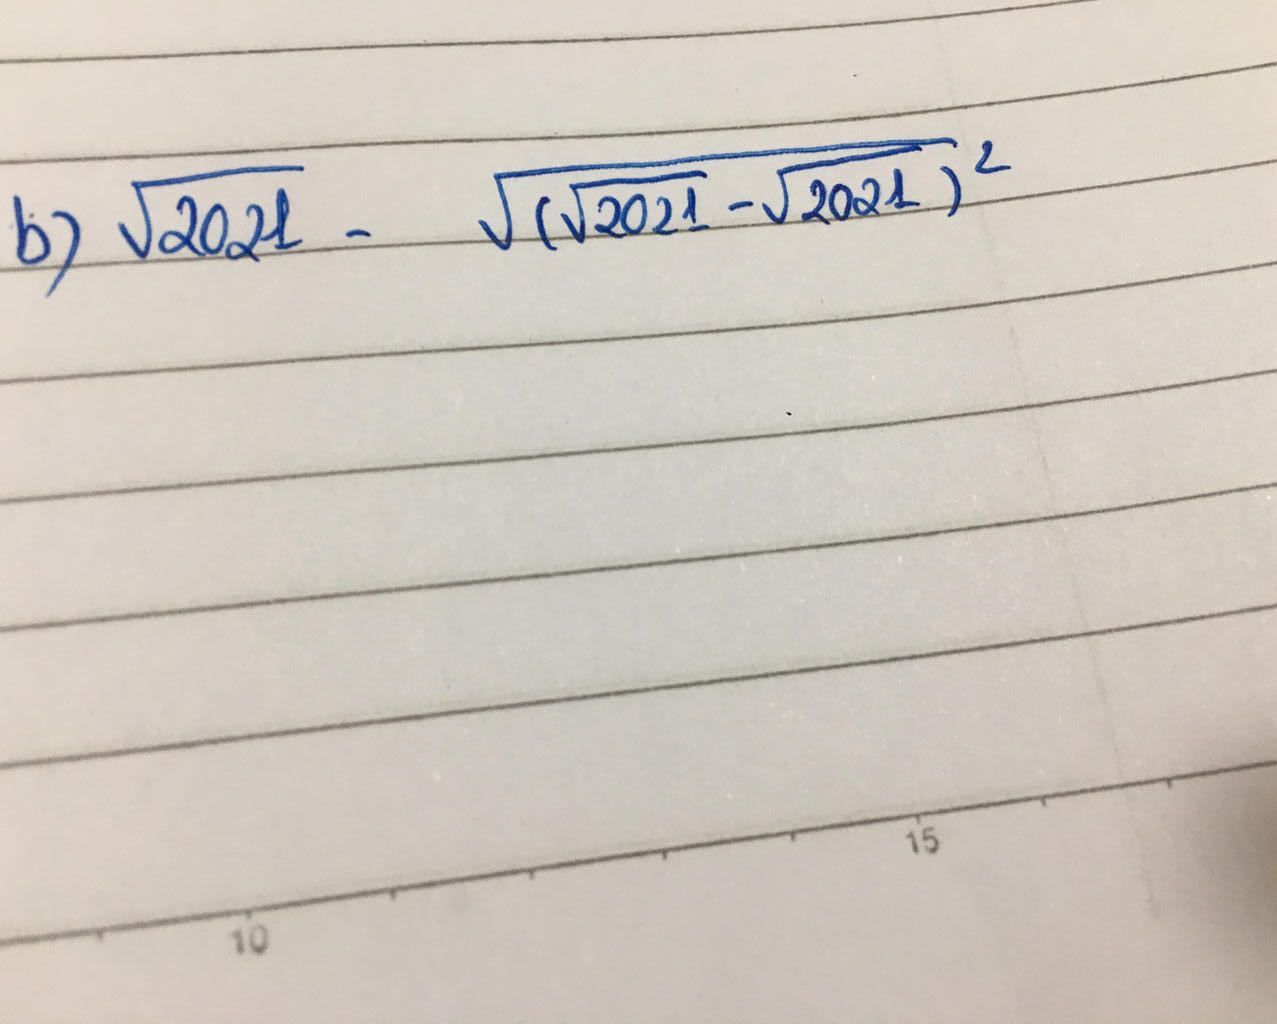 b) √2021 - √(√2021 - √2021)²
10 15